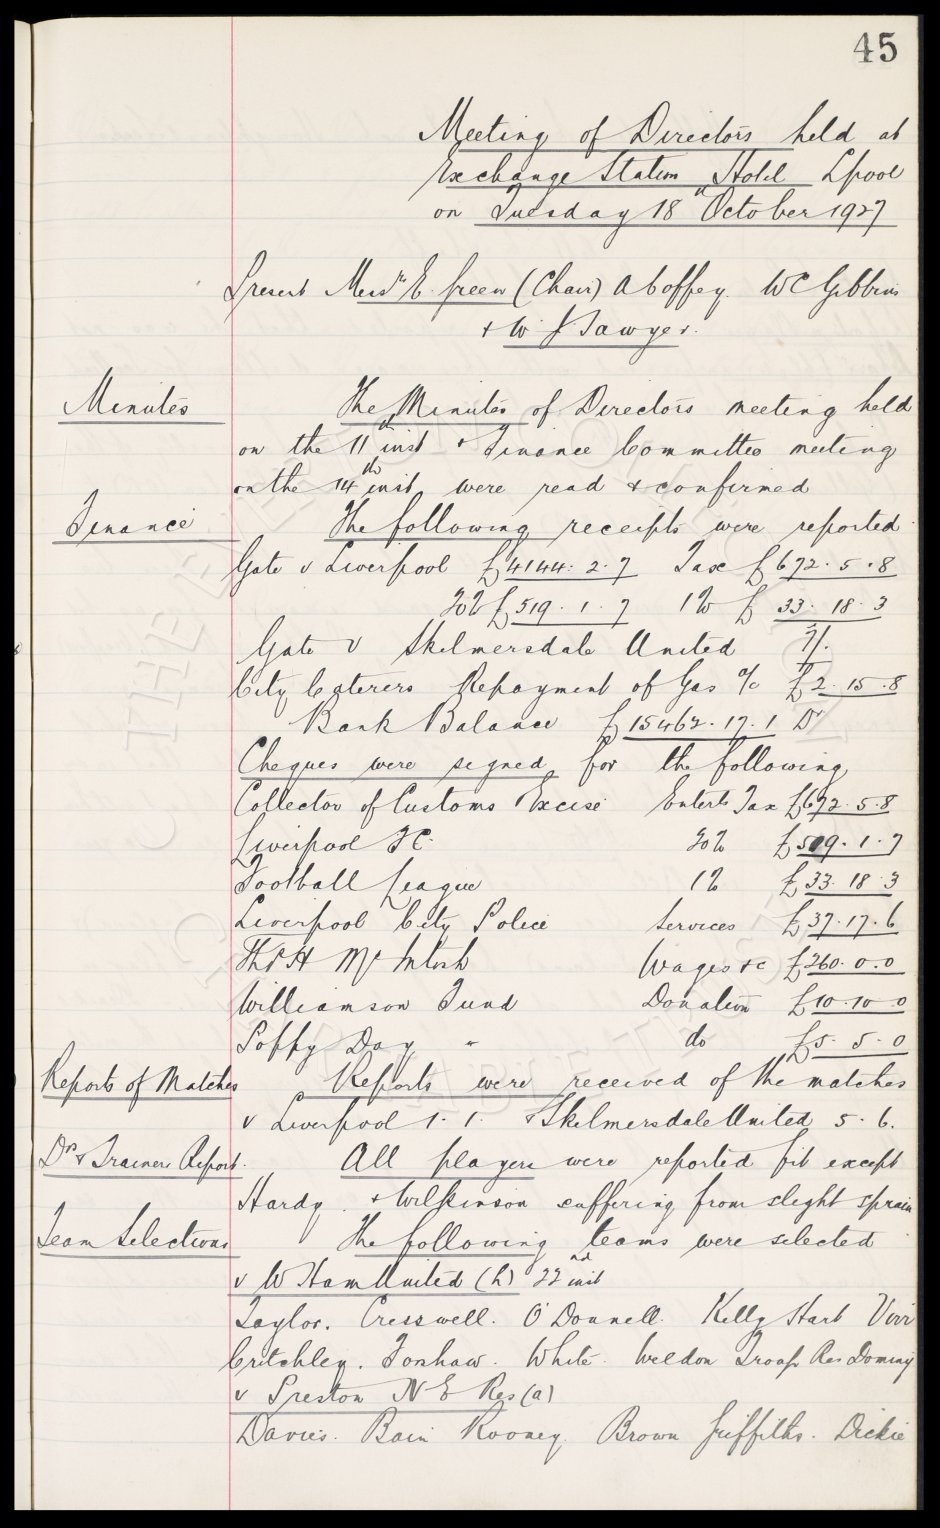 45
Meeting of Directors held at
Exchange Station Hotel Lpool
on Tuesday 18th October 1927
Present Messrs E. Green (Chair) A Coffey. W C Gibbins
+ W J Sawyer.
Minutes The Minutes of Directors meeting held
on the 11th inst + Finance Committee meeting
on the 14th inst were read + confirmed
Finance The following receipts were reported
Gate v Liverpool £4144. 2. 7 Tax £672. 5. 8
20% £519. 1. 7 1% £33. 18. 3
Gate v Skelmersdale United 7/.
City Caterers Repayment of Gas a/c £2. 15. 8
Bank Balance £15462. 17. 1 Dr
Cheques were signed for the following
Collector of Customs Excise Enterts Tax £672. 5. 8
Liverpool FC. 20% £519. 1. 7
Football League 1% £33. 18. 3
Liverpool City Police Services £37. 17. 6
Thos H McIntosh Wages +c £260. 0. 0
Williamson Fund Donation £10. 10. 0
Poppy Day " do £5. 5. 0
Reports of Matches Reports were received of the matches
v Liverpool 1. 1. + Skelmersdale United 5. 6.
Drs + Trainers Report. All players were reported fit except
Hardy. + Wilkinson suffering from slight sprain
Team Selections The following teams were selected
v W Ham United (h) 22nd inst
Taylor. Cresswell. O'Donnell. Kelly Hart Virr
Critchley. Forshaw. White. Weldon Troup Res Dominy
v Preston N E Res (a)
Davies. Bain Rooney. Brown Griffiths. Dickie
THE EVERTON COLLECTION
CHARITABLE TRUST